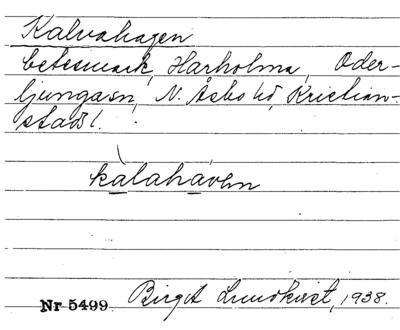 Kalvahagen
betesmark, Hårholma, Oder-
ljunga sn, N. Åsbo hd, Kristian-
stad l.
kalahaven
Nr 5499. Birgit Lundkvist, 1938.